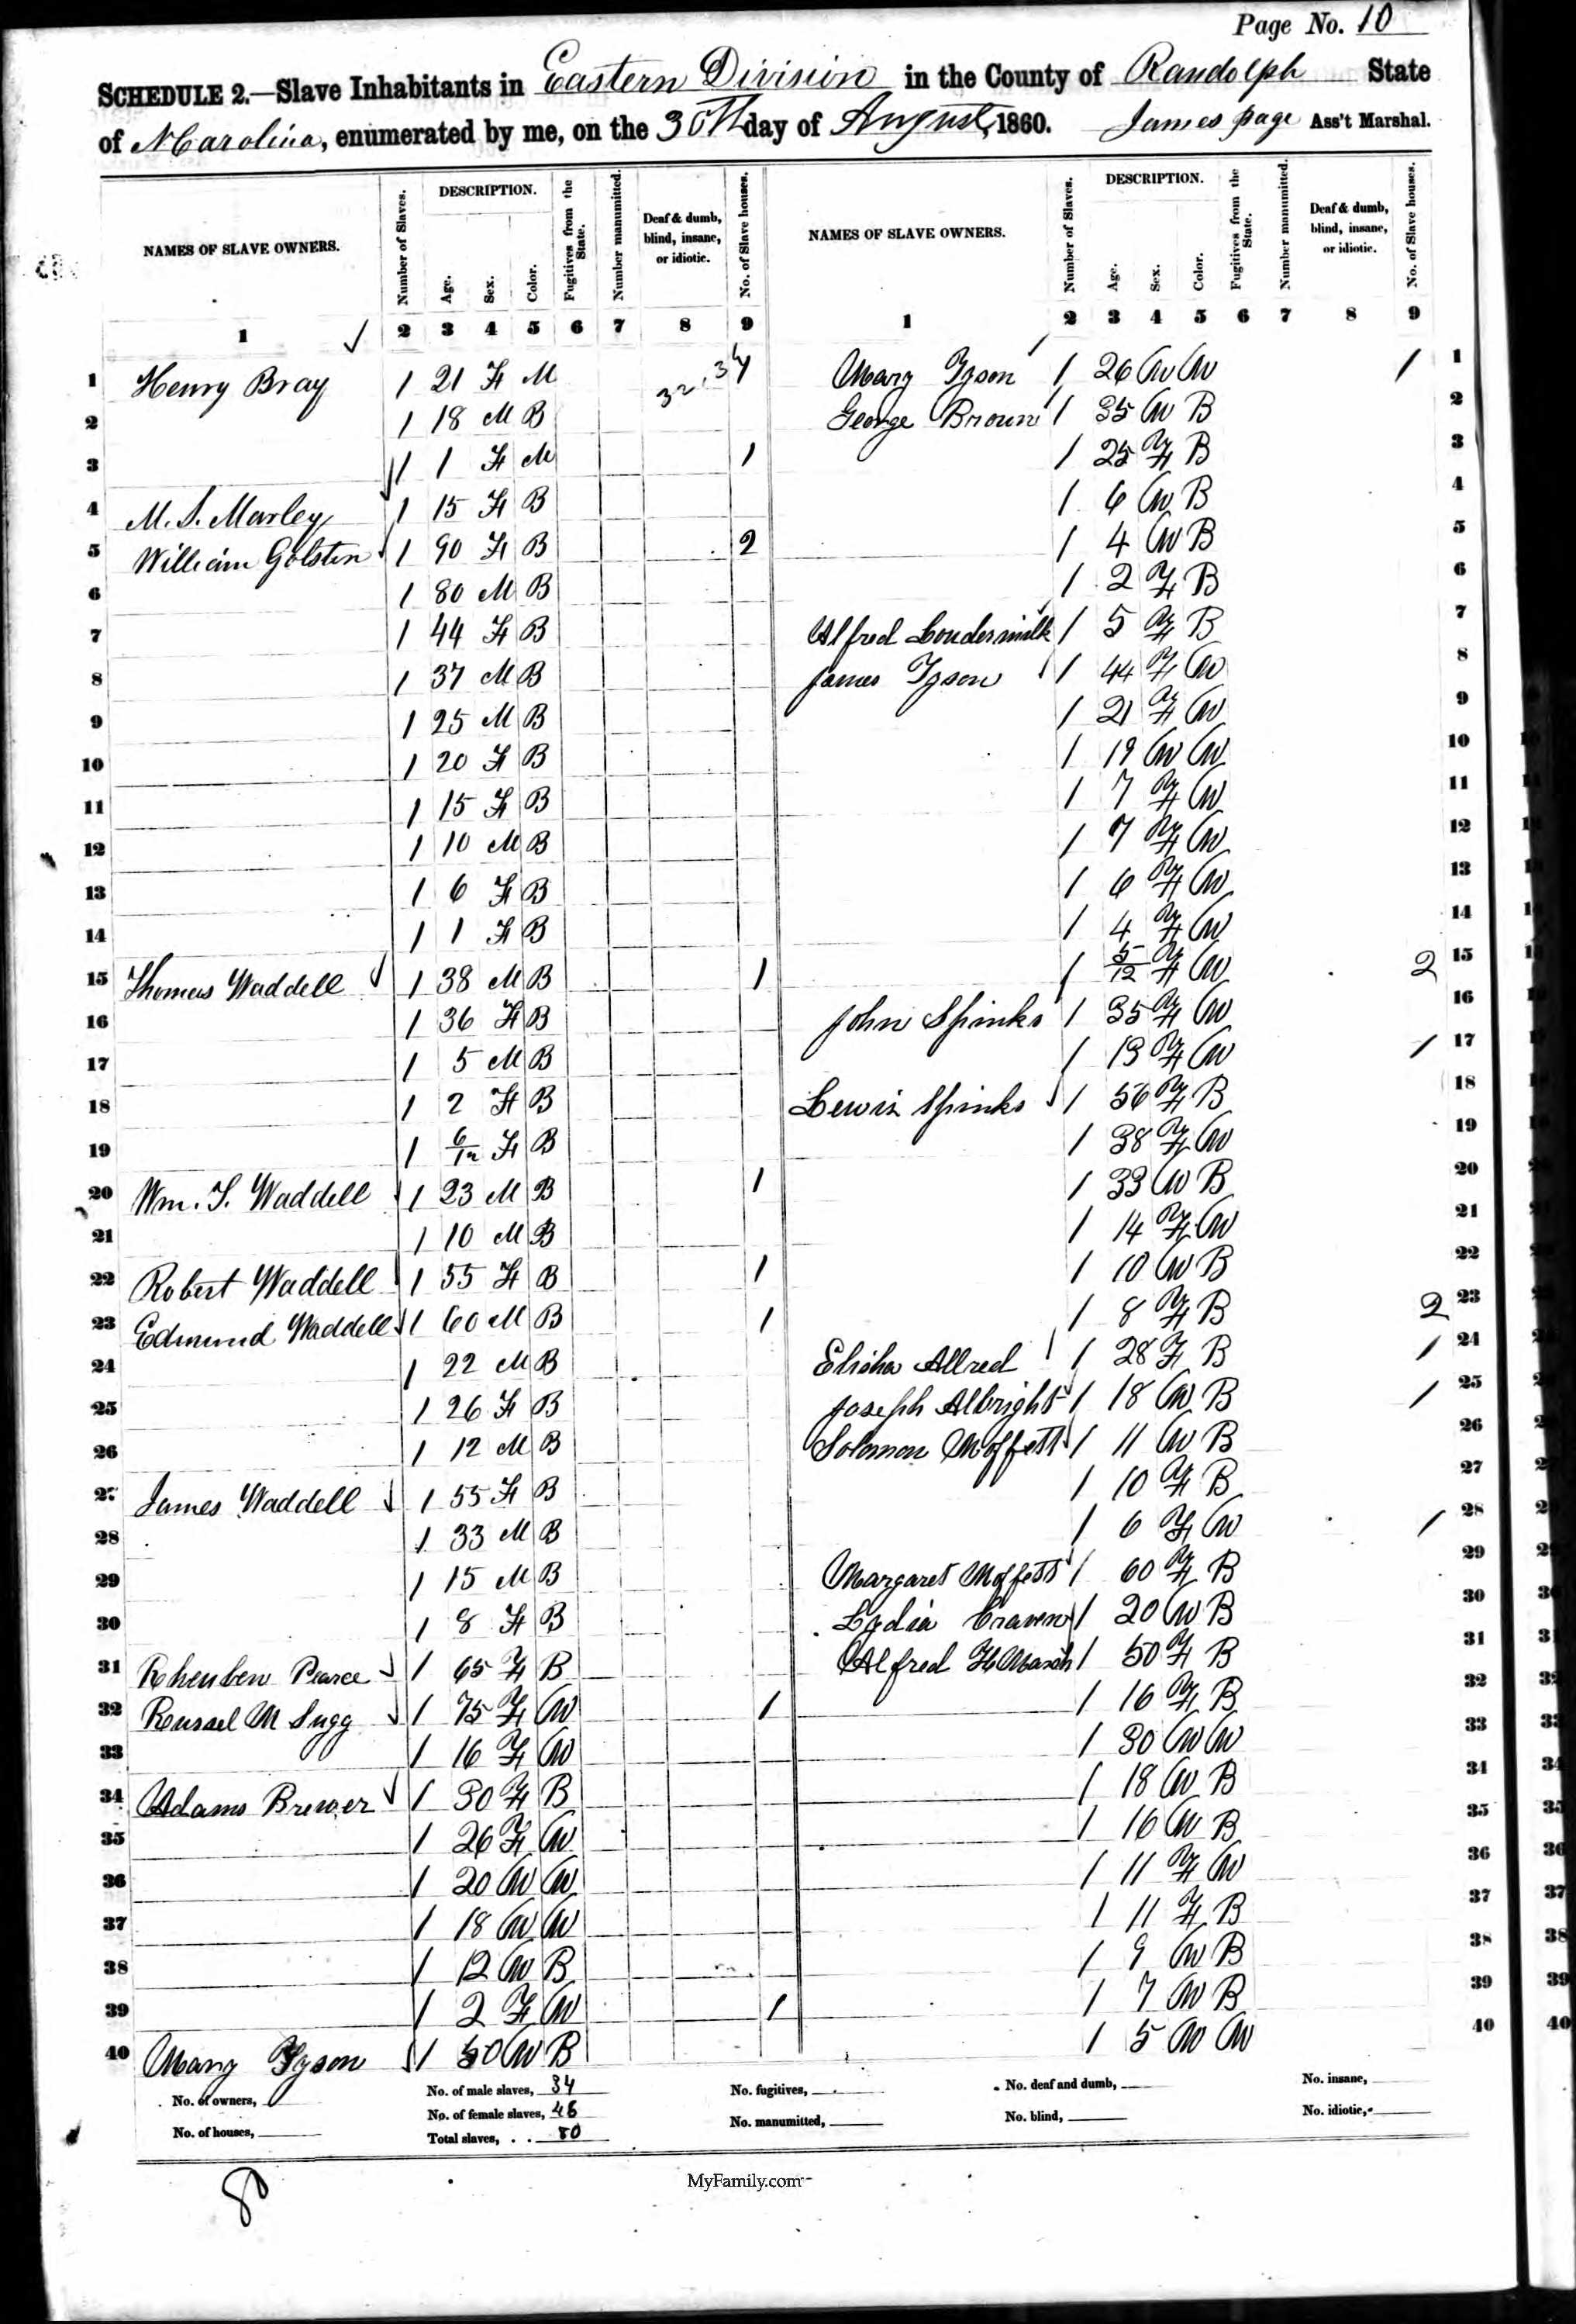 Page No. 10
SCHEDULE 2.—Slave Inhabitants in Eastern Division in the County of Randolph State
of N Carolina, enumerated by me, on the 30th day of August, 1860. James page Ass't Marshal.
NAMES OF SLAVE OWNERS. Number of Slaves. DESCRIPTION. Age. Sex. Color. Fugitives from the State. Number manumitted. Deaf & dumb, blind, insane, or idiotic. No. of Slave houses. NAMES OF SLAVE OWNERS. Number of Slaves. DESCRIPTION. Age. Sex. Color. Fugitives from the State. Number manumitted. Deaf & dumb, blind, insane, or idiotic. No. of Slave houses.
1 2 3 4 5 6 7 8 9 1 2 3 4 5 6 7 8 9
1 Henry Bray 1 21 F M Mary Tyson 1 26 M M 1 1
2 1 18 M B George Brown 1 35 M B 2
3 1 1 F M 1 1 25 F B 3
4 M. S. Marley 1 15 F B 1 6 M B 4
5 William Golsten 1 90 F B 2 1 4 M B 5
6 1 80 M B 1 2 F B 6
7 1 44 F B Alfred Loudermilk 1 5 F B 7
8 1 37 M B James Tyson 1 44 F M 8
9 1 25 M B 1 21 F M 9
10 1 20 F B 1 19 M M 10
11 1 15 F B 1 7 F M 11
12 1 10 M B 1 7 F M 12
13 1 6 F B 1 6 F M 13
14 1 1 F B 1 4 F M 14
15 Thomas Waddell 1 38 M B 1 1 5/12 F M 2 15
16 1 36 F B John Spinks 1 35 F M 16
17 1 5 M B 1 13 F M 1 17
18 1 2 F B Lewis Spinks 1 56 F B 18
19 1 6/12 F B 1 38 F M 19
20 Wm. T. Waddell 1 23 M B 1 1 33 M B 20
21 1 10 M B 1 14 F M 21
22 Robert Waddell 1 55 F B 1 1 10 M B 22
23 Edmund Waddell 1 60 M B 1 1 8 F B 2 23
24 1 22 M B Elisha Allred 1 28 F B 1 24
25 1 26 F B Joseph Albright 1 18 M B 1 25
26 1 12 M B Solomon Moffett 1 11 M B 26
27 James Waddell 1 55 F B 1 10 F B 27
28 1 33 M B 1 6 F M 1 28
29 1 15 M B Margaret Moffett 1 60 F B 29
30 1 8 F B Lydia Craven 1 20 M B 30
31 Rheuben Pearce 1 65 F B Alfred H Marsh 1 50 F B 31
32 Russel M Sugg 1 75 F M 1 1 16 F B 32
33 1 16 F M 1 30 M M 33
34 Adams Brewer 1 30 F B 1 18 M B 34
35 1 26 F M 1 16 M B 35
36 1 20 M M 1 11 F M 36
37 1 18 M M 1 11 F B 37
38 1 12 M B 1 9 M B 38
39 1 2 F M 1 1 7 M B 39
40 Mary Tyson 1 50 M B 1 5 M M 40
No. of owners, No. of male slaves, 34 No. fugitives, No. deaf and dumb, No. insane,
No. of houses, No. of female slaves, 46 No. manumitted, No. blind, No. idiotic,
Total slaves, . . 80
80
MyFamily.com